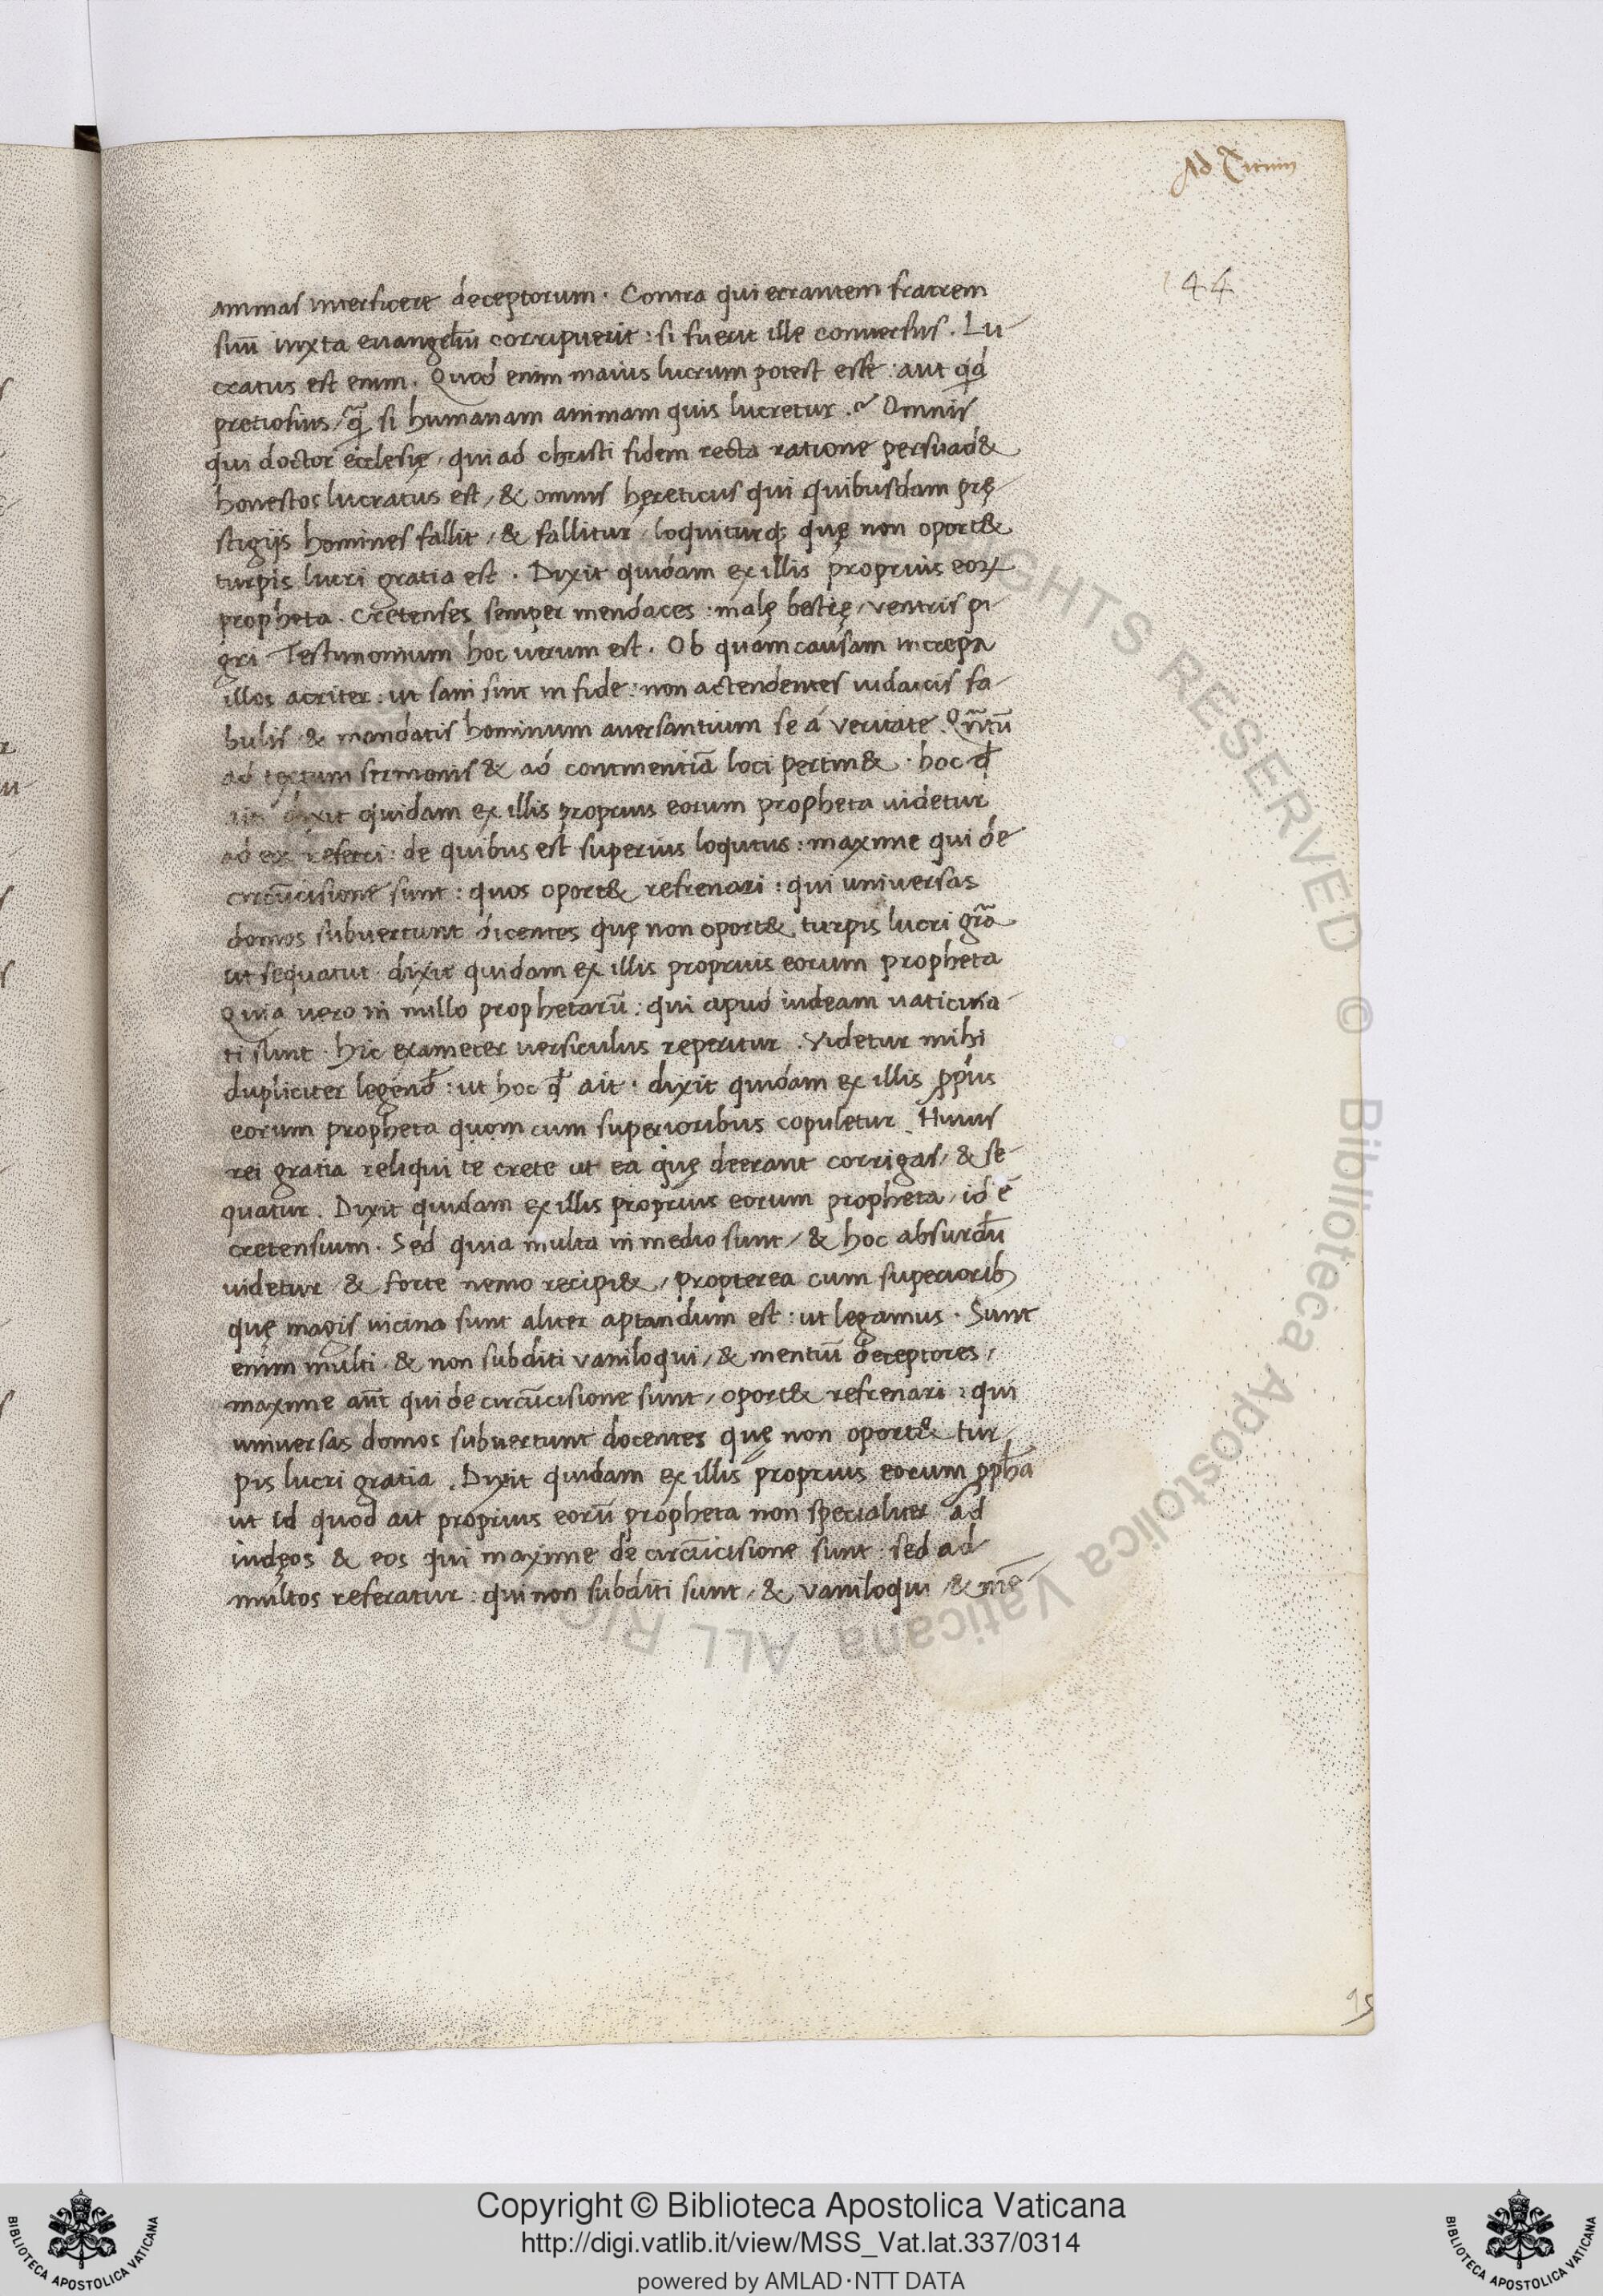 Ad Titum
144
animas interficere deceptorum. Contra qui errantem fratrem
suũ iuxta euangeliũ corripuerit: si fuerit ille conuersus. Lu-
cratus est enim. Quod enim maius lucrum potest esse: aut qd
pretiosius / q̃ si humanam animam quis lucretur. Omnis
qui doctor ecclesię / qui ad christi fidem recta ratione persuad&
honestos lucratus est / & omnis hęreticus qui quibusdam prę-
stigijs homines fallit / & fallitur / loquiturq; quę non oport&
turpis lucri gratia est. Dixit quidam ex illis proprius eoꝝ
propheta. Cretenses semper mendaces: malę bestię / ventris pi-
gri. Testimonium hoc uerum est. Ob quam causam increpa
illos acriter: ut sani sint in fide: non actendentes iudaicis fa-
bulis & mandatis hominum auersantium se á veritate. Qñtũ
ad textum sermonis & ad continentiã loci pertin& . hoc qđ
ait dixit quidam ex illis proprius eorum propheta uidetur
ad eos referri: de quibus est superius loqutus: maxime qui de
circũcisione sunt: quos oport& refrenari: qui uniuersas
domos subuertunt dicentes quę non oport& turpis lucri gr̃a
ut sequatur dixit quidam ex illis proprius eorum propheta
Quia uero in nullo prophetarũ: qui apud iudeam uaticina-
ti sunt. hic exameter uersiculus reperitur. Videtur mihi
dupliciter legend̃: ut hoc qđ ait. dixit quidam ex illis ꝓpius
eorum propheta quom cum superioribus copuletur. Huius
rei gratia reliqui te crete ut ea quę deerant corrigas / & se-
quatur. Dixit quidam ex illis proprius eorum propheta / id ẽ
cretensium. Sed quia multa in medio sunt / & hoc absurdũ
uidetur & forte nemo recipi& / propterea cum superiorib;
quę magis uicina sunt aliter aptandum est: ut legamus. Sunt
enim multi. & non subditi vaniloqui / & mentiũ deceptores /
maxime aũt qui de circũcisione sunt / oport& refrenari: qui
uniuersas domos subuertunt docentes quę non oport& tur-
pis lucri gratia. Dixit quidam ex illis proprius eorum ꝓpħa
ut id quod ait proprius eorũ propheta non specialiter ad
iudęos & eos qui maxime de circũcisione sunt: sed ad
multos referatur: qui non subditi sunt / & vaniloqui / & mẽ-
ALL RIGHTS RESERVED © Biblioteca Apostolica Vaticana ALL RIG
Copyright © Biblioteca Apostolica Vaticana
http://digi.vatlib.it/view/MSS_Vat.lat.337/0314
powered by AMLAD·NTT DATA
BIBLIOTECA APOSTOLICA VATICANA
BIBLIOTECA APOSTOLICA VATICANA